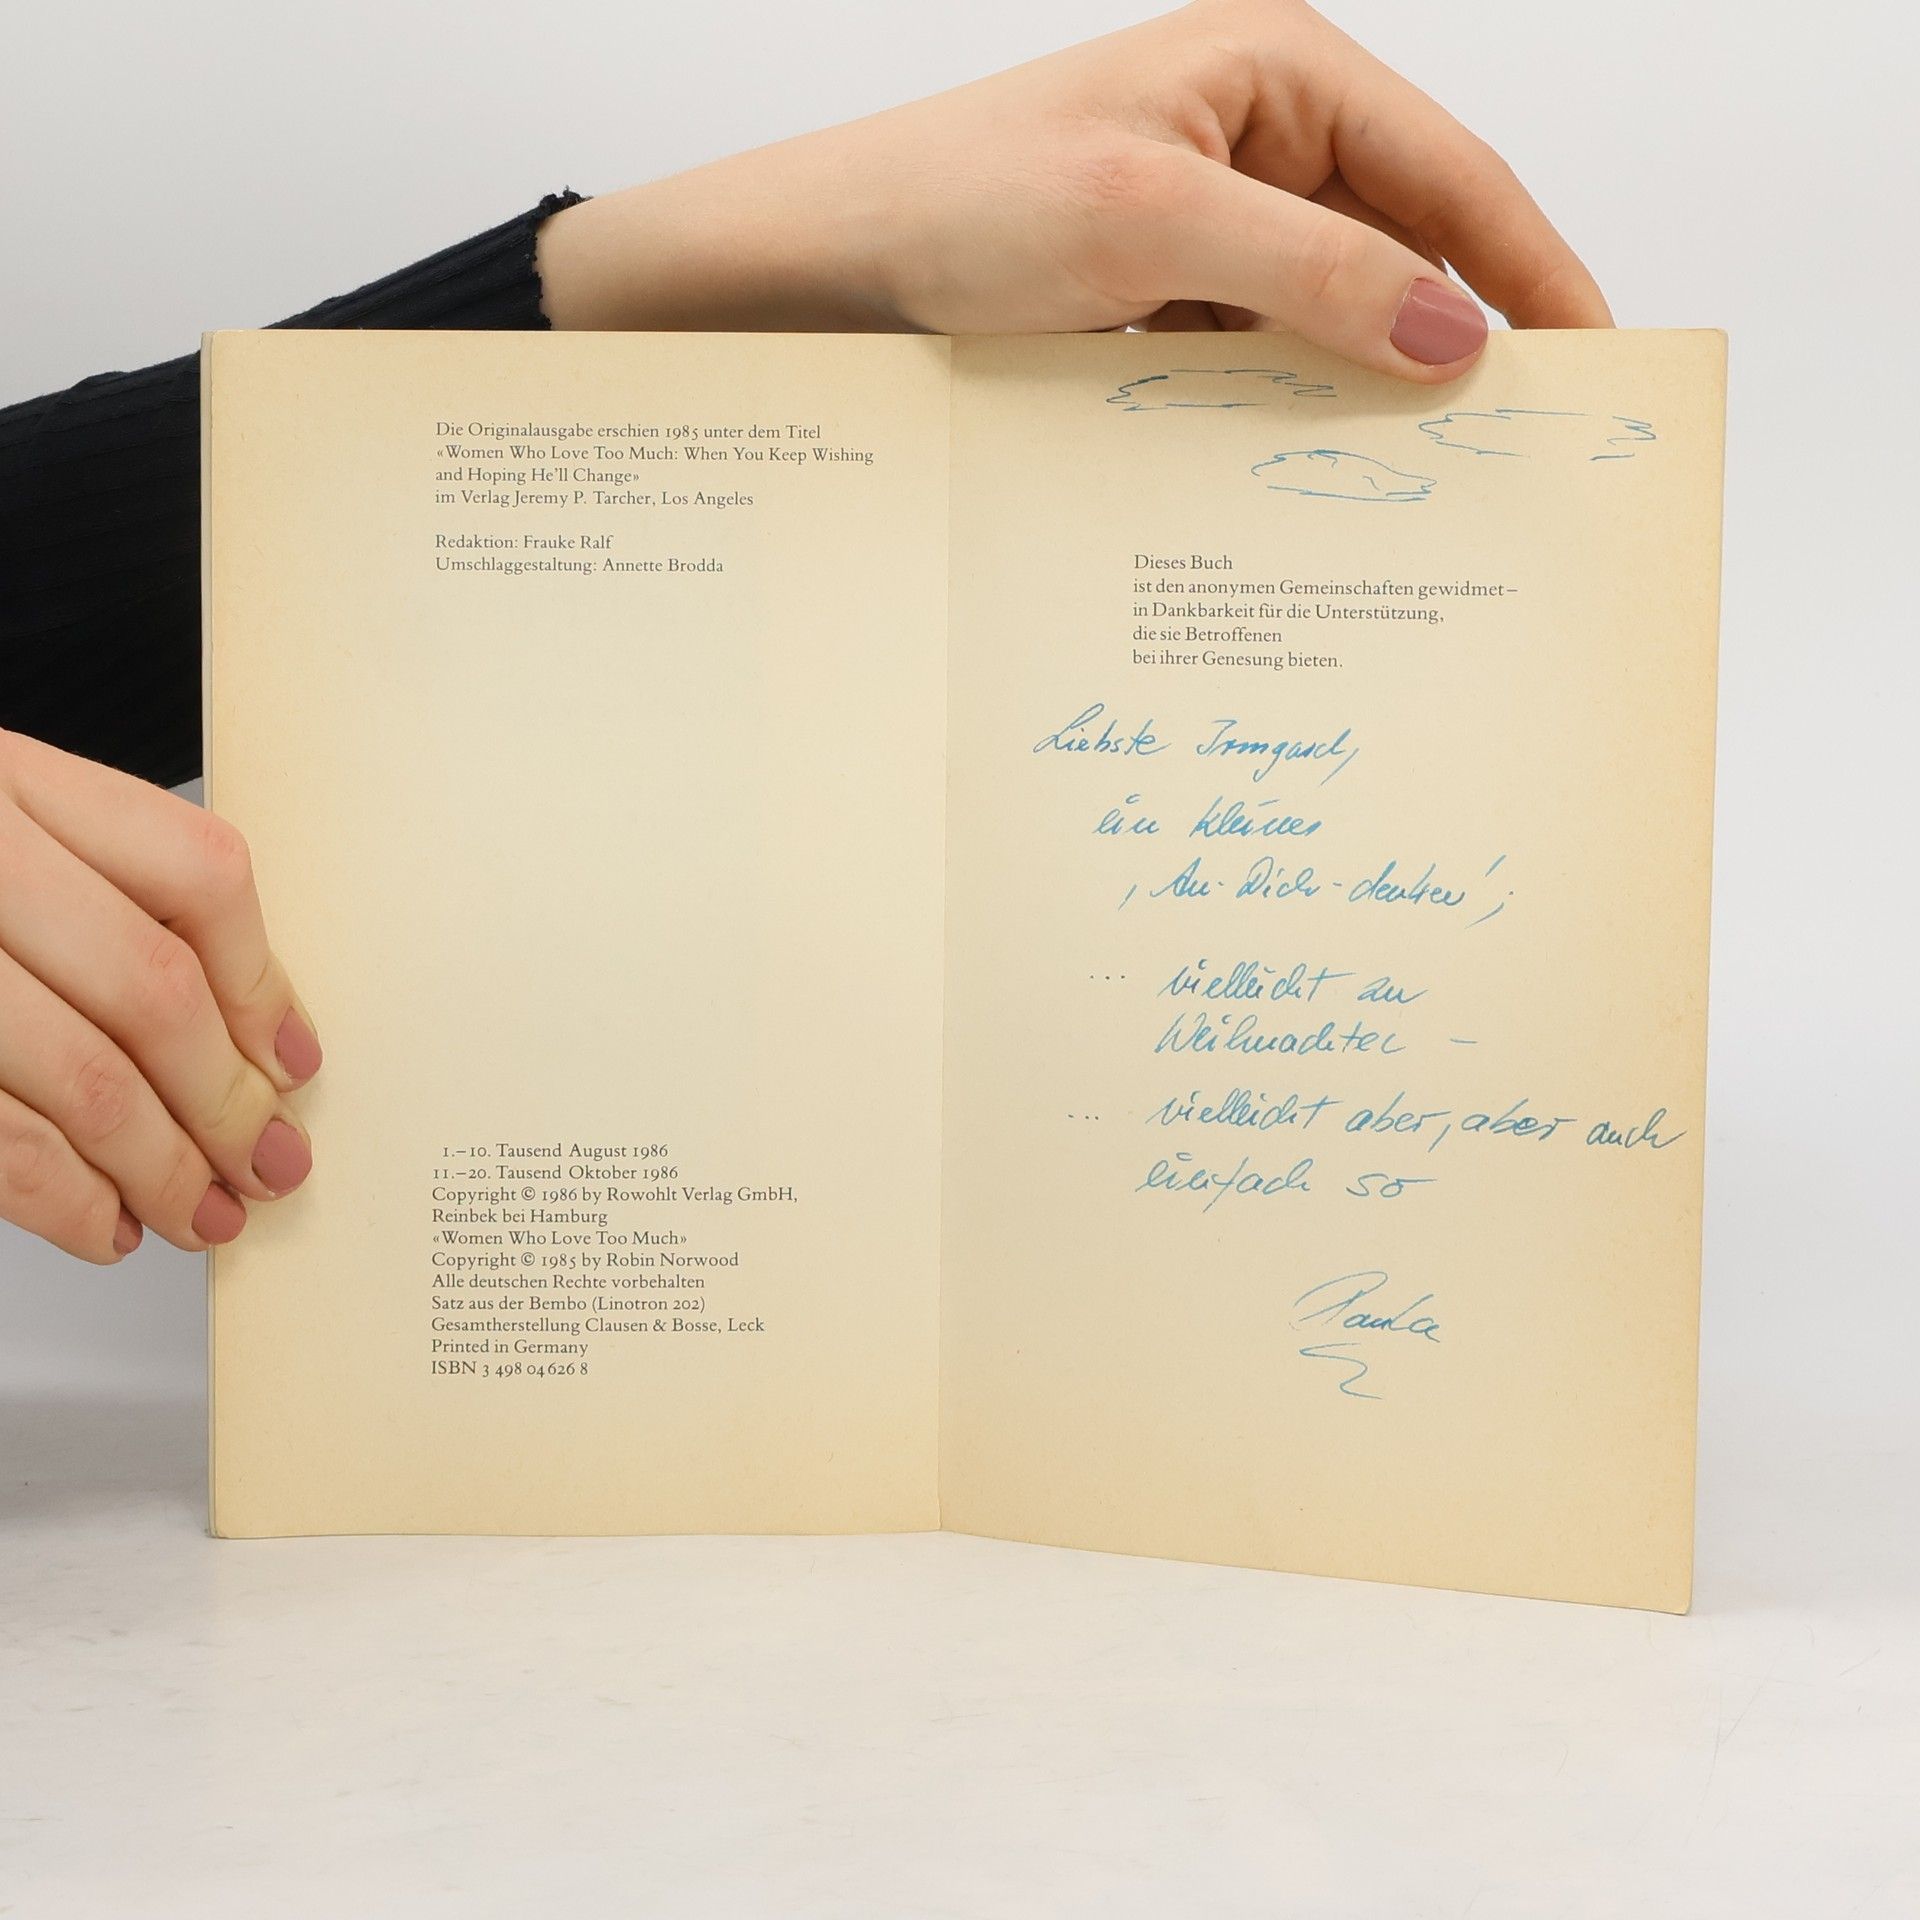 Die Originalausgabe erschien 1985 unter dem Titel
«Women Who Love Too Much: When You Keep Wishing
and Hoping He'll Change»
im Verlag Jeremy P. Tarcher, Los Angeles
Redaktion: Frauke Ralf
Umschlaggestaltung: Annette Brodda
1.–10. Tausend August 1986
11.–20. Tausend Oktober 1986
Copyright © 1986 by Rowohlt Verlag GmbH,
Reinbek bei Hamburg
«Women Who Love Too Much»
Copyright © 1985 by Robin Norwood
Alle deutschen Rechte vorbehalten
Satz aus der Bembo (Linotron 202)
Gesamtherstellung Clausen & Bosse, Leck
Printed in Germany
ISBN 3 498 04626 8
Dieses Buch
ist den anonymen Gemeinschaften gewidmet –
in Dankbarkeit für die Unterstützung,
die sie Betroffenen
bei ihrer Genesung bieten.
Liebste Irmgard,
ein kleines
‚An-Dich-denken';
... vielleicht zu
Weihnachten –
... vielleicht aber, aber auch
einfach so